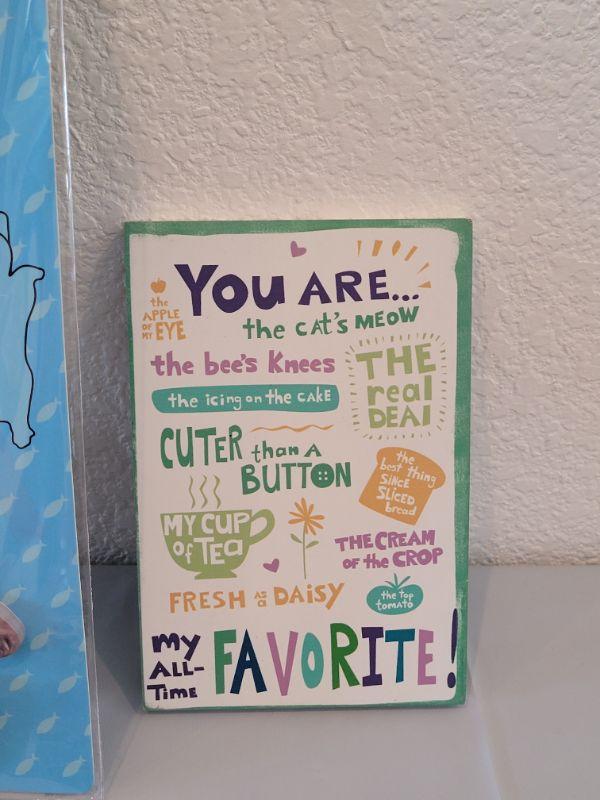 YOU ARE...
the APPLE OF MY EYE
the cAt's MEOW
the bee's Knees
THE
real
DEAl
the icing on the cAKE
CUTER than A
BUTTON
the
best thing
SiNCE
SLiCED
bread
MY CUP
of TEa
THE CREAM
OF THE CROP
FRESH AS a DAiSY
the top
tomato
my
ALL-
Time
FAVORITE!